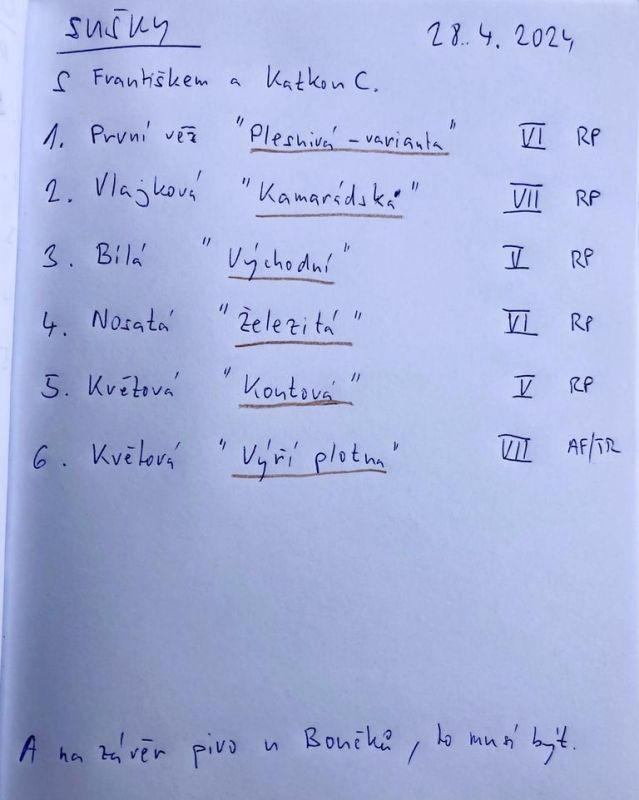 SUŠKY 28.4.2024
S Františkem a Katkou C.
1. První věž "Plesnivá – varianta" VI RP
2. Vlajková "Kamarádská" VII RP
3. Bílá "Východní" V RP
4. Nosatá "Železitá" VI RP
5. Květová "Koutová" V RP
6. Květová "Výří plotna" VII AF/TR
A na závěr pivo u Bončků, to musí být.